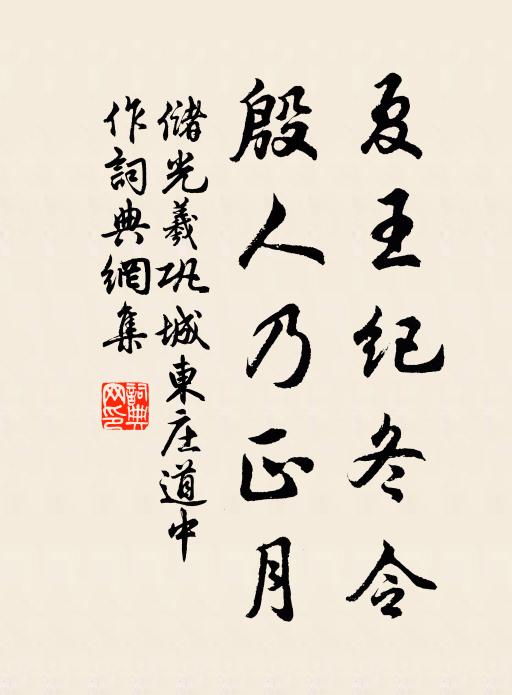 夏王纪冬令
殷人乃正月
储光羲巩城東庄道中
作詞典網集
詞典
网印